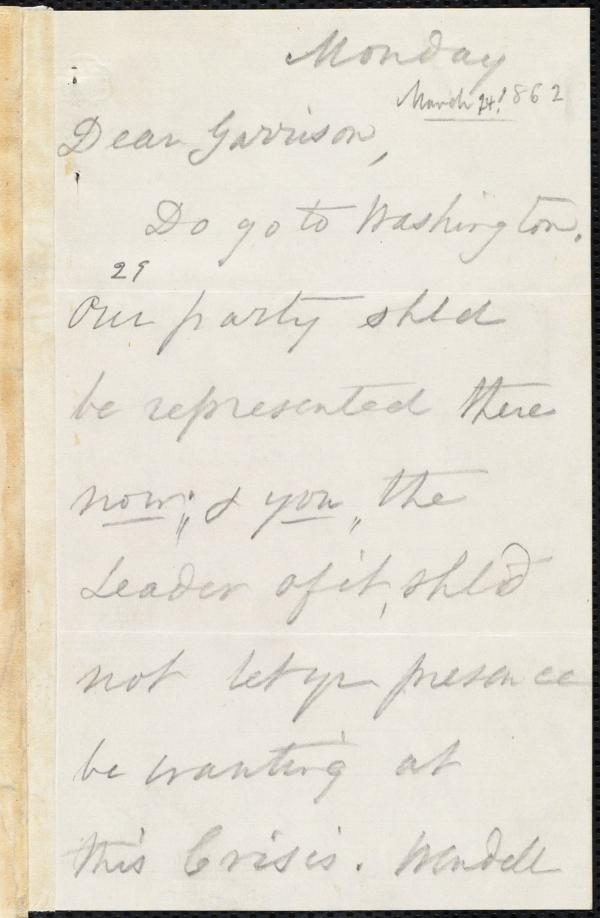 Monday
March 24. 1862
Dear Garrison,
Do go to Washington.
29
Our party shld
be represented there
now; & you, the
Leader of it, shld
not let yr presence
be wanting at
this Crisis. Wendell